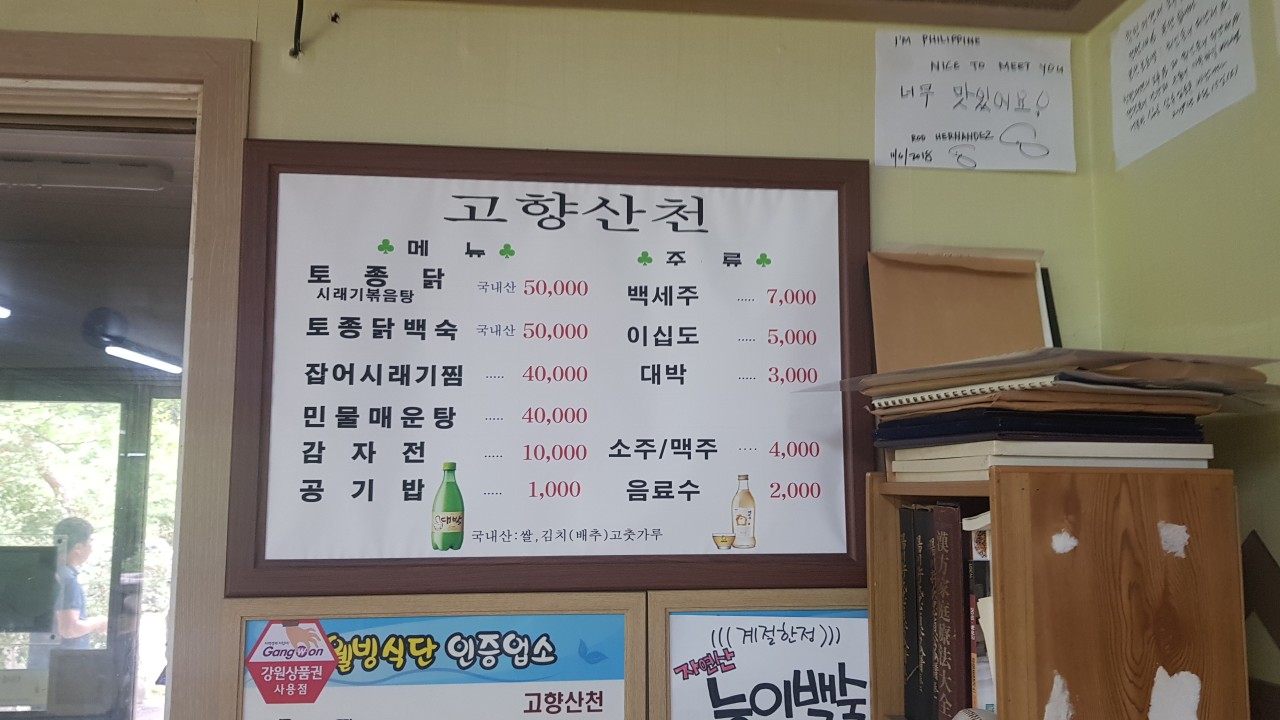 I'M PHILIPPINE
NICE TO MEET YOU
너무 맛있어요!
ROD HERNANDEZ
고향산천
메 뉴
토종닭 시래기볶음탕 국내산 50,000
토종닭백숙 국내산 50,000
잡어시래기찜 ..... 40,000
민물매운탕 40,000
감자전 ..... 10,000
공기밥 ..... 1,000
주 류
백세주 ..... 7,000
이십도 ..... 5,000
대박 ..... 3,000
소주/맥주 .... 4,000
음료수 2,000
대박
국내산:쌀,김치(배추)고춧가루
GangWon
강원상품권
사용점
웰빙식단 인증업소
고향산천
(((계절한정)))
자연산
능이백숙
漢方家庭療法大全